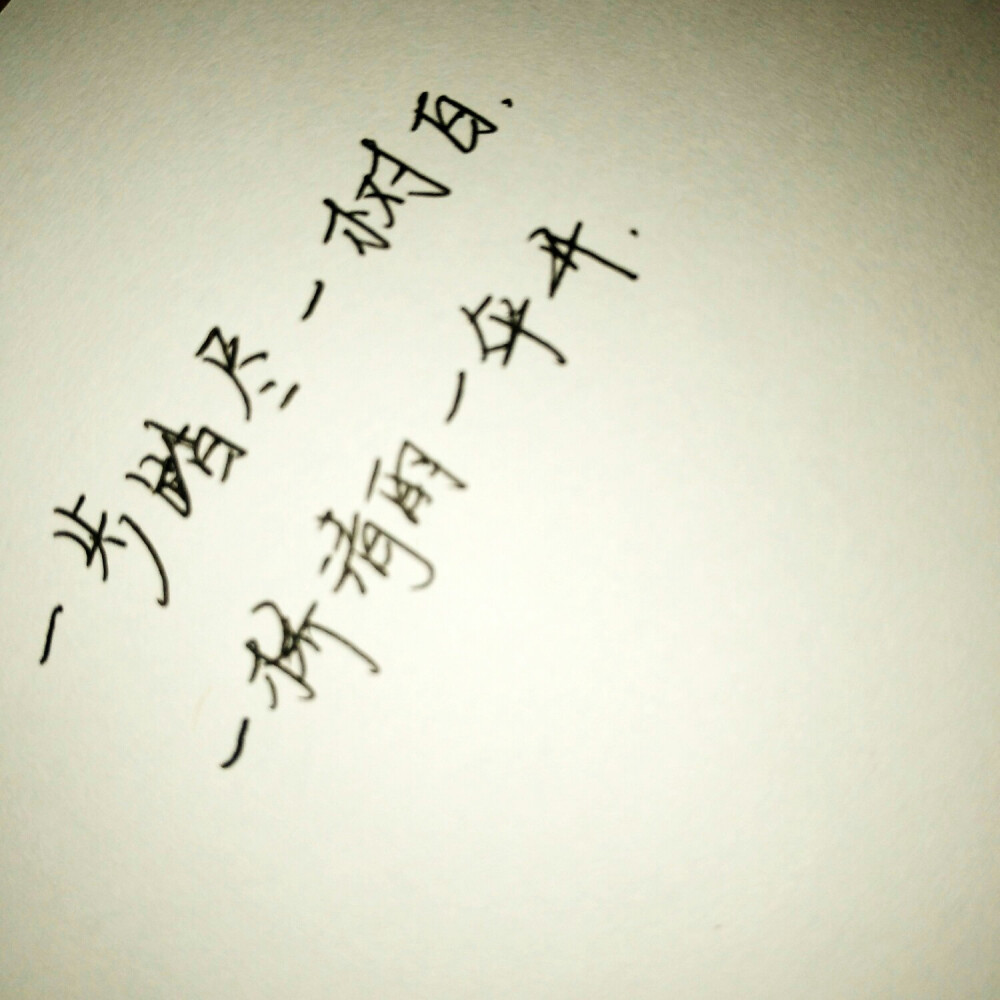 一步踏尽一树白.
一桥清雨一伞开.